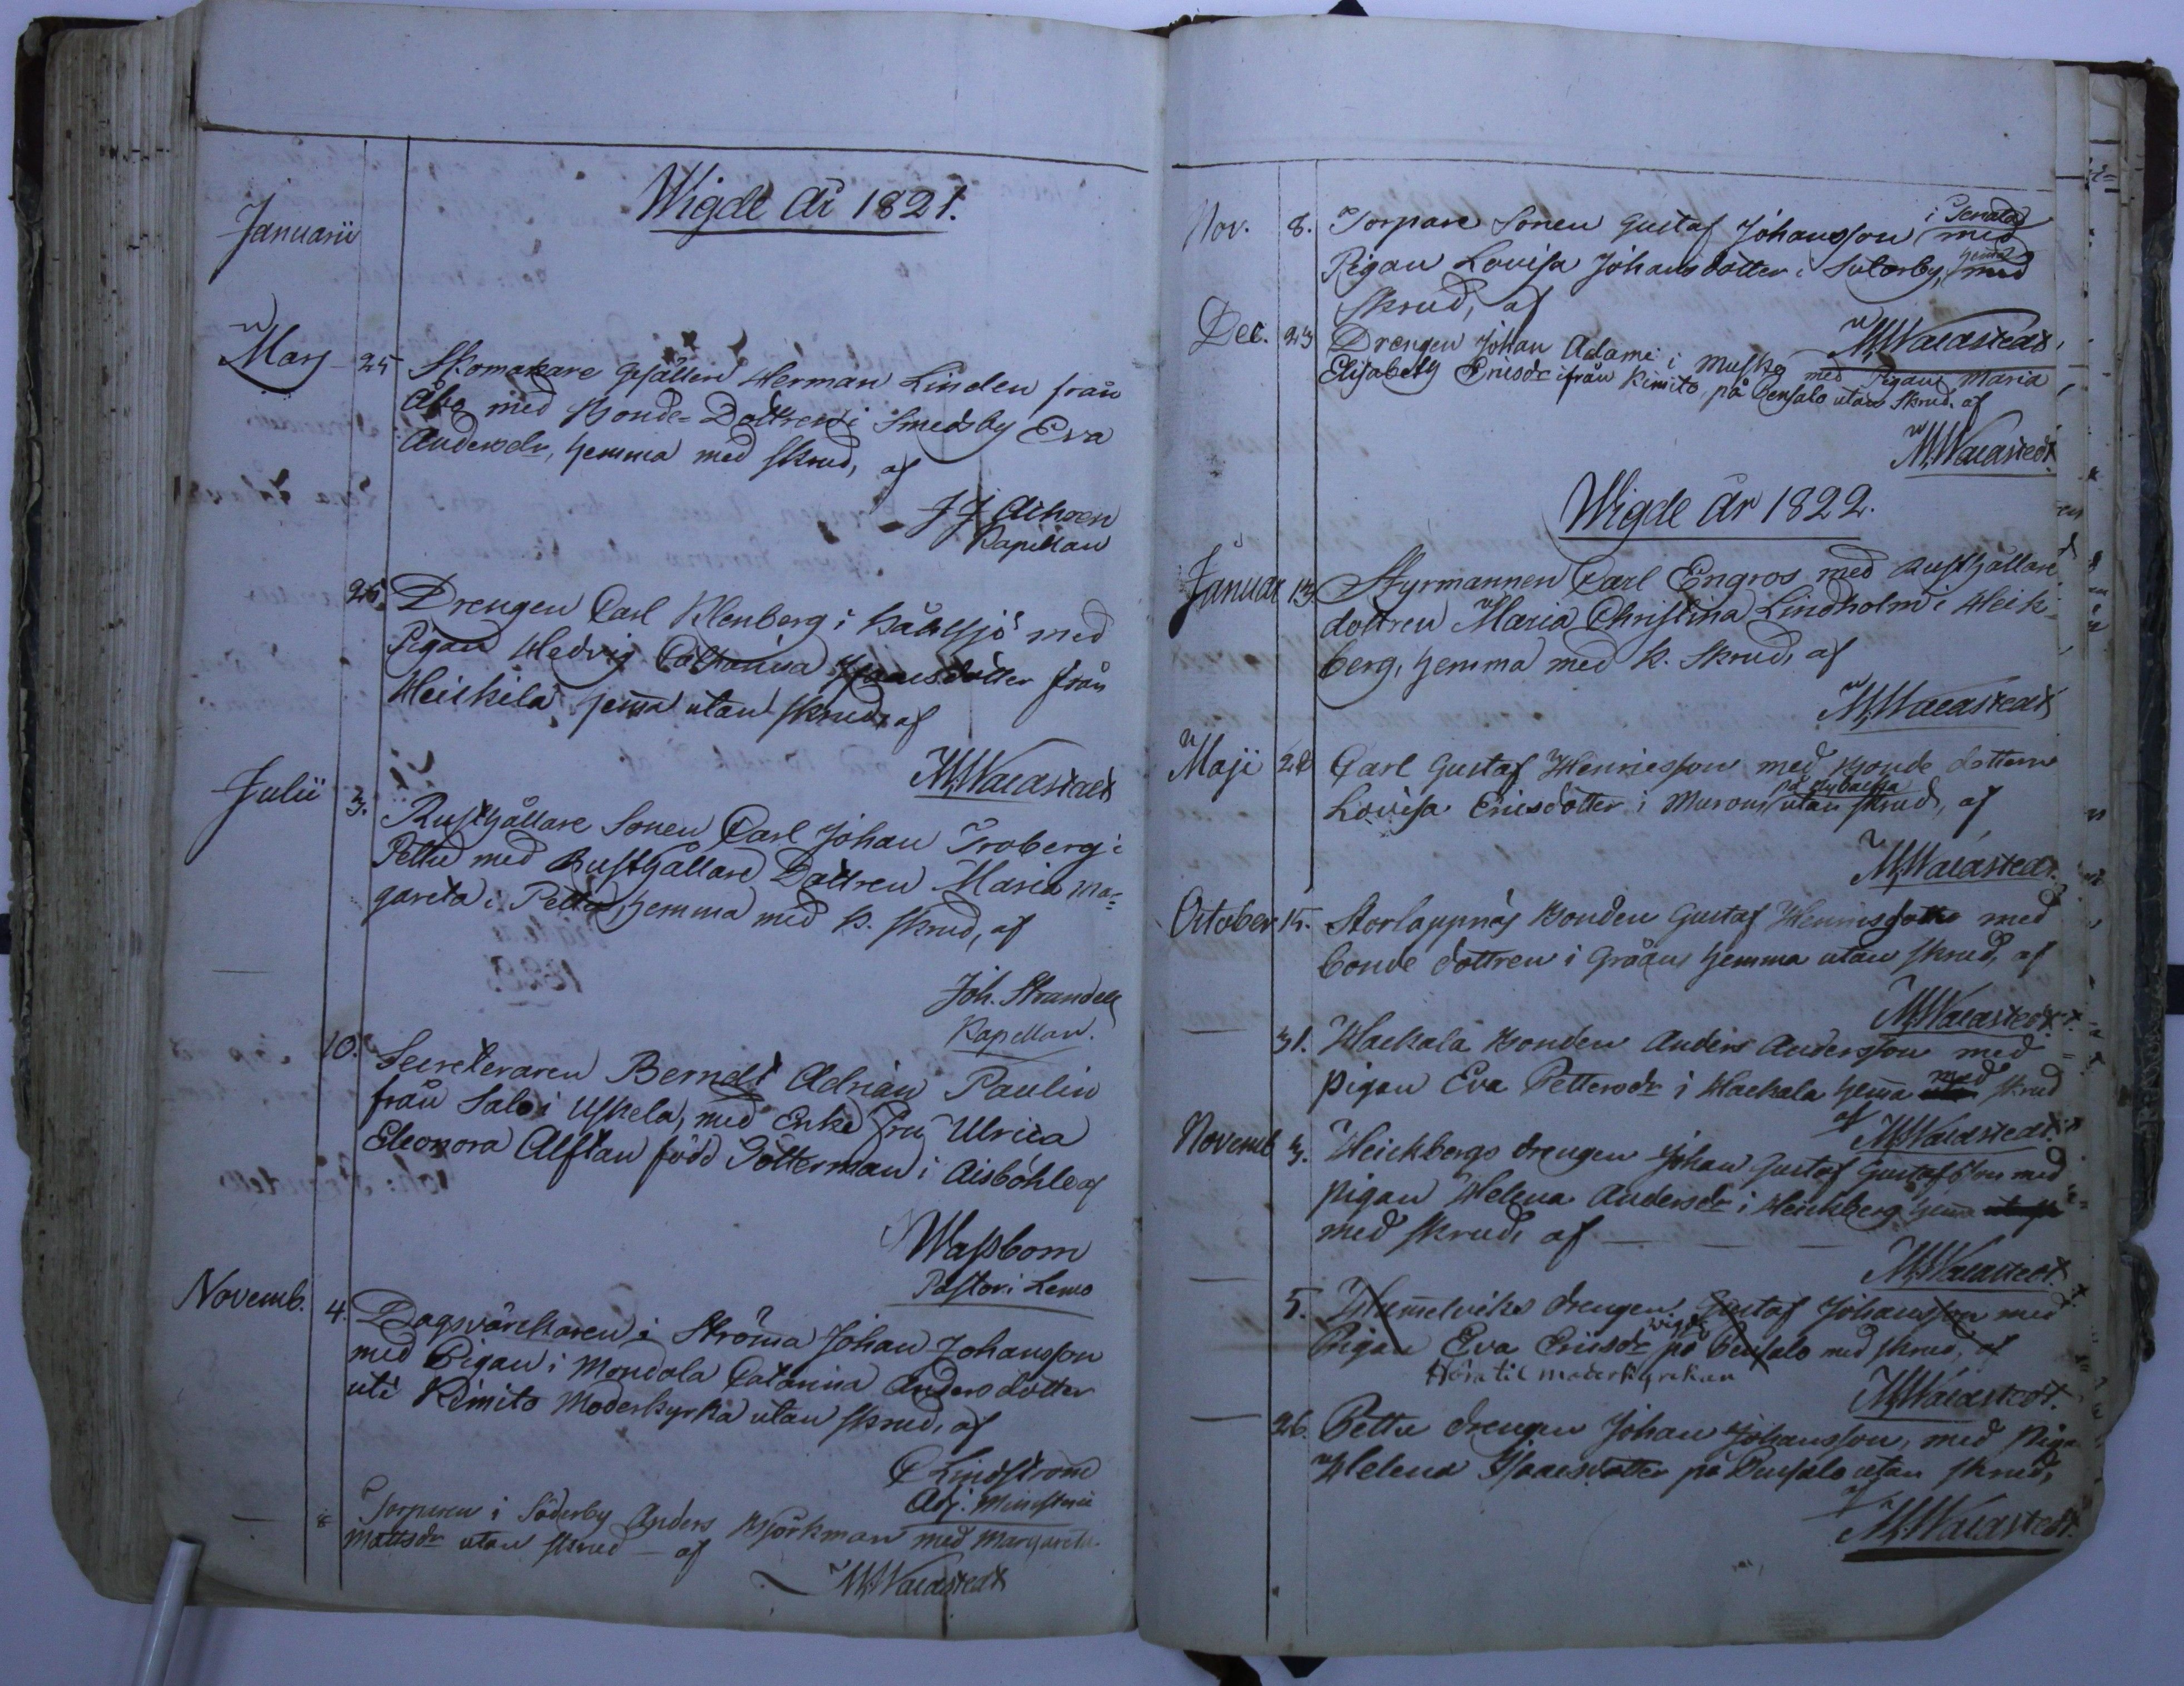 Wigde År 1821.
Januarii
Mars 25 Skomakare Gesällen Herman Linden från
Åbo med Bonde-Dottren i Smedsby Eva
Andersdr, hemma med skrud, af
Kapellan
26 Drengen Carl Klenberg i med
Pigan Hedvig Catharina Isaacsdotter från
Heickilä hema utan skrud, af
M. Waldstedt
Julii 3. Rusthållare Sonen Carl Johan Troberg i
Pettu med Rusthållare Dottren Maria Mar=
gareta i Pettu, hemma med K. skrud, af
Joh. Strandell
Kapellan.
10. Secreteraren Berndt Adrian Paulin
från Salo i Uskela, med Enke Fru Ulrica
Eleonora Alftan född Götterman i Aisböhle af
Wassbom
Pastor i Lemo
Novemb. 4. Dagsvärckaren i Ströma Johan Johansson
med Pigan i Mondola Catarina Andersdotter
uti Kimito Moderkyrka utan skrud, af
C Lindström
Adj. Ministerii
8 Torparen i Söderby Anders Björkman med Margareta
Mattsdr utan skrud - af
M. Waldstedt
Nov. 8. Torpare Sonen Gustaf Johansson i Tenala med
Pigan Lovisa Johansdotter i Sutarby, hema med
skrud, af
M. Waldstedt.
Dec. 23 Drengen Johan Adami i Musko med Pigan Maria
Elisabeth Ericsdr ifrån Kimito, på Bensalo utan skrud. af
M. Waldstedt.
Wigde År 1822.
Januar 13 Styrmannen Carl Engros med Rusthållare
dottren Maria Christina Lindholm i Heick-
berg, hemma med K. Skrud, af
M. Waldstedt
Maji 28 Carl Gustaf Henricsson med Bonde dottern
på
Lovisa Ericsdotter i utan skrud, af
M. Waldstedt.
October 15. Storlappnäs Bonden Gustaf med
Bonde dottren i Gråäns hemma utan skrud, af
M. Waldstedt.
31. Hackala Bonden Anders Andersson med
pigan Eva Pettersdr i Hackala hema med skrud
af M. Waldstedt.
Novemb 3. Heickbergs drengen Johan Gustaf Gustafsson med
pigan Helena Andersdr i Heickberg hema
med skrud, af
M. Waldstedt.
5. Hamelviks drengen Gustaf Johansson med
Pigan Eva Ericsdr vigde på Bensalo med skrud, af
Höra til moderkyrkan
M. Waldstedt.
26. Pettu drengen Johan Johansson, med Piga
Helena Isaacsdotter på Bensalo utan skrud,
af
M. Waldstedt.